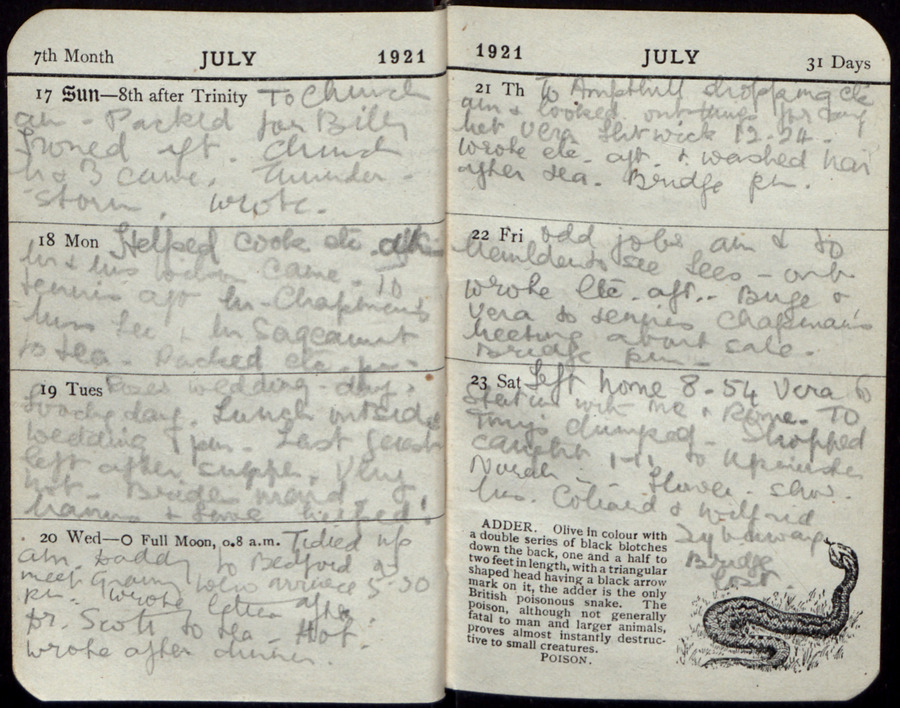 7th Month JULY 1921
17 Sun—8th after Trinity To Church
am - Packed for Billy
Ironed aft. Church
& 3 came. Thunder-
storm. Wrote.
18 Mon Helped cook etc. aft.
& his came. To
tennis aft Chapman's
Miss Lee & Sageaunt
to tea. Packed etc. pm-
19 Tues wedding-day.
day. Lunch outside
wedding 1 pm. Last guest
left after supper. Very
hot. Brides maid.
& helped!
20 Wed—O Full Moon, 0.8 a.m. Tidied up
am. Daddy to Bedford to
meet Granny who arrived 5-30
pm. Wrote letters after
Dr. Scott to tea. Hot.
Wrote after dinner.
1921 JULY 31 Days
21 Th To Ampthill shopping etc
am & looked out things for
met Vera Flitwick 12-24.
Wrote etc. aft. & washed hair
after tea. Bridge pm.
22 Fri Odd jobs am & to
see Lees -
Wrote etc. aft.. &
Vera to tennis Chapman's
meeting about sale.
Bridge pm
23 Sat Left home 8-54 Vera to
Station with me & Rome. To
dumped - Shopped
caught 1-11 to Upminster
Flower - show.
Mrs. & Wilfrid
Bridge
Lost
ADDER. Olive in colour with
a double series of black blotches
down the back, one and a half to
two feet in length, with a triangular
shaped head having a black arrow
mark on it, the adder is the only
British poisonous snake. The
poison, although not generally
fatal to man and larger animals,
proves almost instantly destruc-
tive to small creatures.
POISON.